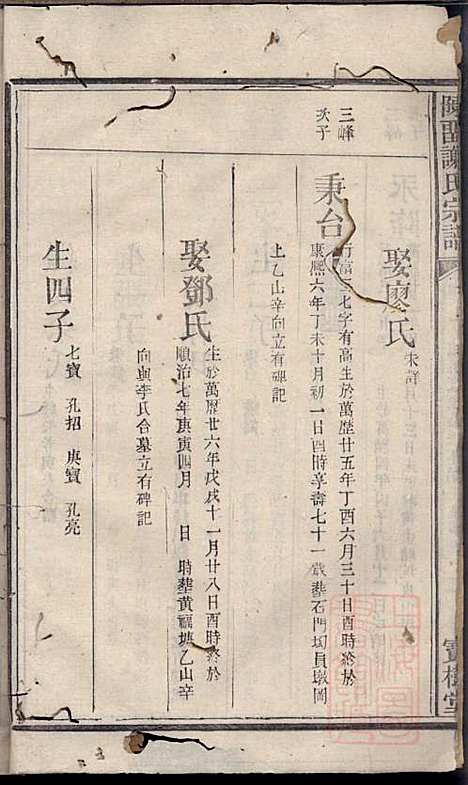 陳留謝氏宗譜
寶樹堂
娶廖氏
三峰
次子
秉台
七字有高生於萬歷廿五年丁酉六月三十日酉時終於
康熙六年丁未十月初一日酉時享壽七十一歲塟石門
上乙山辛向立有碑記
娶鄧氏
生於萬歷廿六年戊戌十一月廿八日酉時終於
順治七年庚寅四月 日 時塟黃 塘乙山辛
向與李氏合墓立有碑記
生四子
七寶 孔招 庚寶 孔亮